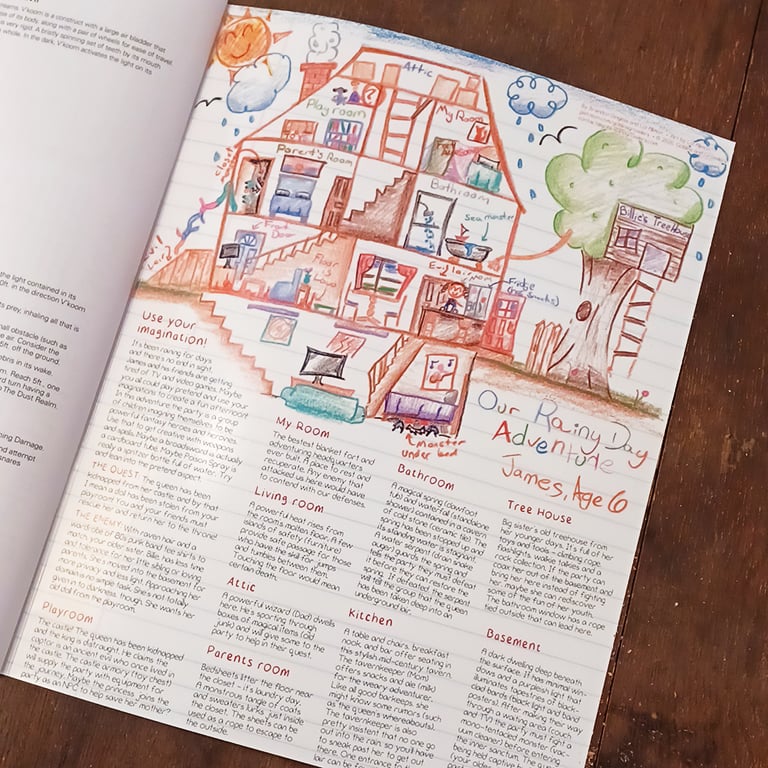 reams. V'koom is a construct with a large air bladder that
of its body, along with a pair of wheels for ease of travel.
is very rigid. A bristly spinning set of teeth by its mouth
whole. In the dark, V'koom activates the light on its
the light contained in its
0ft. in the direction V'koom
s prey, inhaling all that is
mall obstacle (such as
e air. Consider the
5ft. off the ground.
ebris in its wake.
m. Reach 5ft., one
rd turn having a
The Dust Realm.
ping Damage.
nd attempt
snares
Attic
Playroom
My Room
Parent's Room
Closet
Bathroom
sea monster
Front Door
Floor is Lava
Fridge
(for snacks)
Billie's TreeHouse
monster
under bed
Our Rainy Day
Adventure
James, Age 6
Use your
imagination!
It's been raining for days
and there's no end in sight.
James and his friends are getting
tired of TV and video games. Maybe
you all could pretend and use your
imaginations to create a fun afternoon!
In this adventure the party is a group
of children imagining themselves to be
powerful fantasy heroes and heroines.
Use that to get creative with weapons
and spells. Maybe a broadsword is actually
a cardboard tube. Maybe Poison Spray is
really a spritzer bottle full of water. Try
and lean into the pretend aspect.
THE QUEST The queen has been
kidnapped from her castle, and by that
I mean a doll has been stolen from your
playroom! You and your friends must
rescue her and return her to the throne!
THE ENEMY With raven hair and a
wardrobe of 80s punk band tee shirts to
match, your older sister Billie has less time
and patience for her little sibling or loving
parents. She's moved into the basement for
more privacy and less light. Approaching her
domain is no simple task. She's not totally
given in to darkness, though. She wants her
old doll from the playroom.
Playroom
The castle! The queen has been kidnapped
and the king is distraught. He claims the
captor is an ancient evil who once lived in
the castle. The castle armory (toy chest)
will supply the party with equipment for
the journey. Maybe the princess joins the
party as an NPC to help save her mother?
My Room
The bestest blanket fort and
adventuring headquarters
ever built. A place to rest and
recuperate. Any enemy that
attacked us here would have
to contend with our defenses.
Living room
A powerful heat rises from
the room's molten floor. A few
islands of safety (furniture)
provide safe passage for those
who have the skill for jumps
and tumbles between them.
Touching the floor would mean
certain death.
Attic
A powerful wizard (Dad) dwells
here. He's sporting through
boxes of magical items (old
junk) and will give some to the
party to help in their quest.
Parents room
Bedsheets litter the floor near
the closet - it's laundry day.
A monstrous tangle of coats
and sweaters lurks just inside
the closet. The sheets can be
used as a rope to escape to
the outside.
Bathroom
A magical spring (clawfoot
tub) and waterfall (standalone
shower) contained in a cavern
of cold stone (ceramic tile). The
spring has been stopped up and
its warding waters have run dry.
A water serpent (drain snake
auger) guards the spring and
tells the party they must defeat
it before they can restore the
spring. If defeated, the serpent
will tell the group that the queen
has been taken deep into an
underground lair.
Kitchen
A table and chairs, breakfast
nook, and bar offer seating in
this stylish mid-century tavern.
The tavernkeeper (Mom)
offers snacks and ale (milk)
for the weary adventurer.
Like all good barkeeps, she
might know some rumors (such
as the queen's whereabouts).
The tavernkeeper is also
pretty insistent that no one go
out into the rain, so you'll have
to sneak past her to get out
there. One entrance to the
lair can be
Tree House
Big sister's old treehouse from
her younger days. It's full of her
toys and tools - climbing rope,
flashlights, walkie talkies, and a
rock collection. If the party can
coax her out of the basement and
bring her here instead of fighting
her, maybe she can rediscover
some of the fun of her youth.
The bathroom window has a rope
tied outside that can lead here.
Basement
A dark dwelling deep beneath
the surface. It has minimal win-
dows and a purplish light that
illuminates tapestries of black-
clad bards (black light and band
posters). After making their way
through a waiting area (couch
and TV) the party must fight a
many-tentacled monster (vac-
uum cleaner) before entering
the inner sanctum. The queen
being held captive